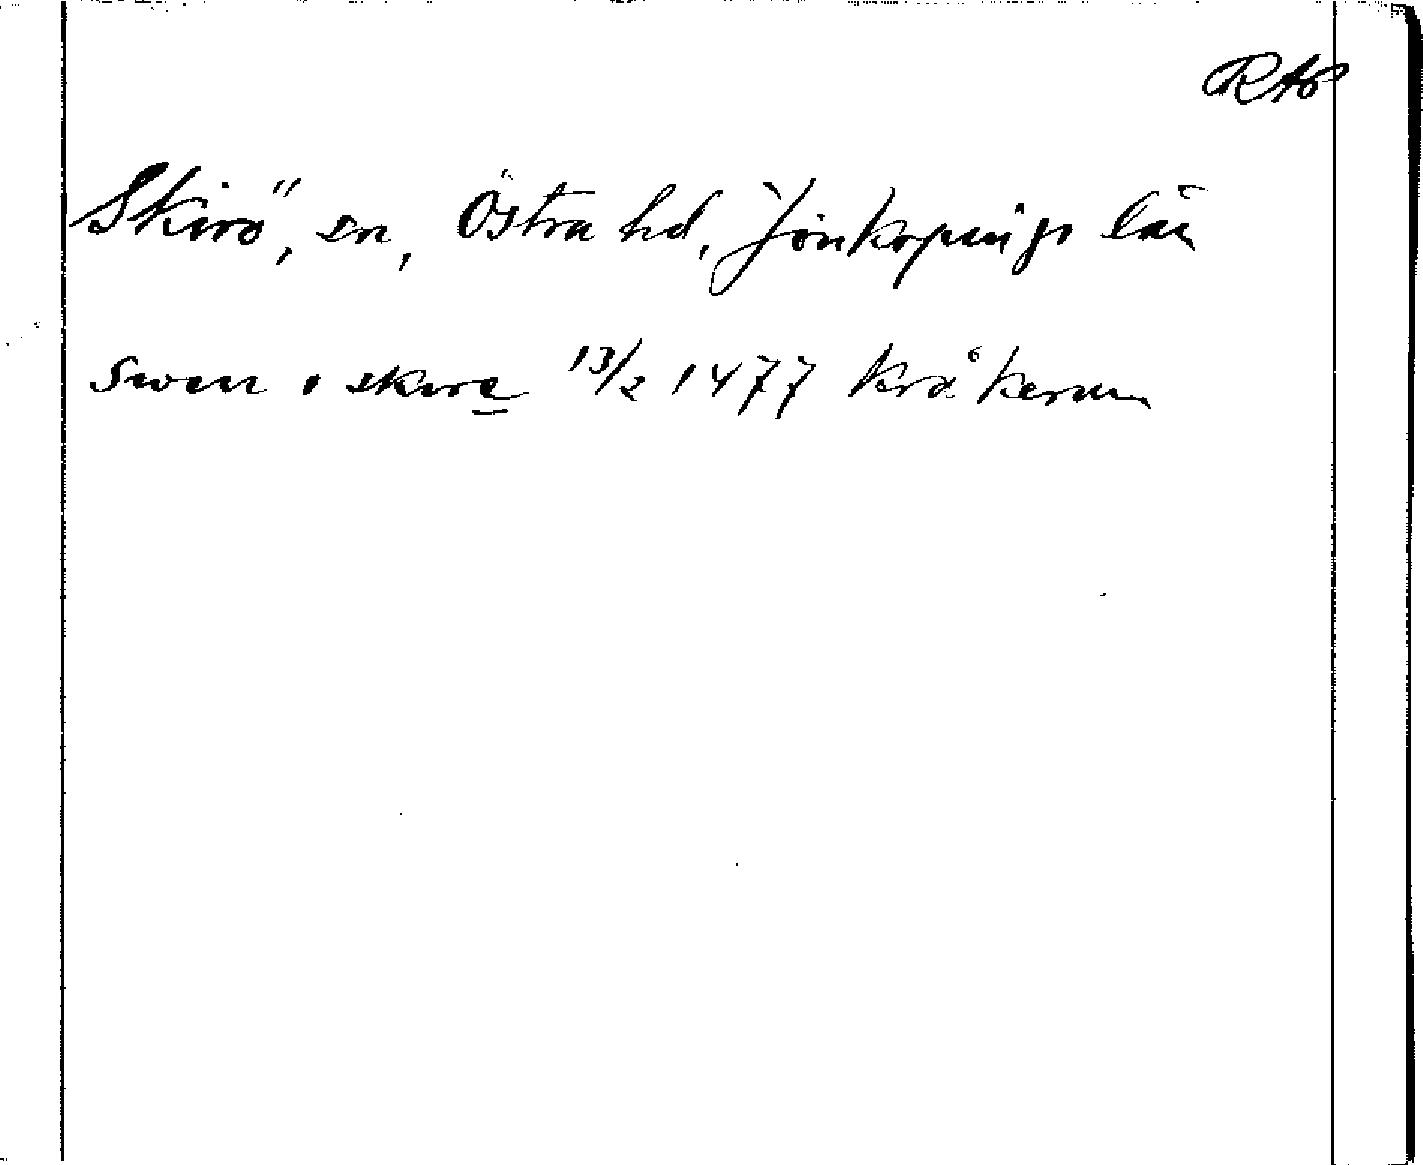 RAp
Skirö, sn, Östra hd, Jönköpings län
Swen i skire 13/2 1477 Kråkerum